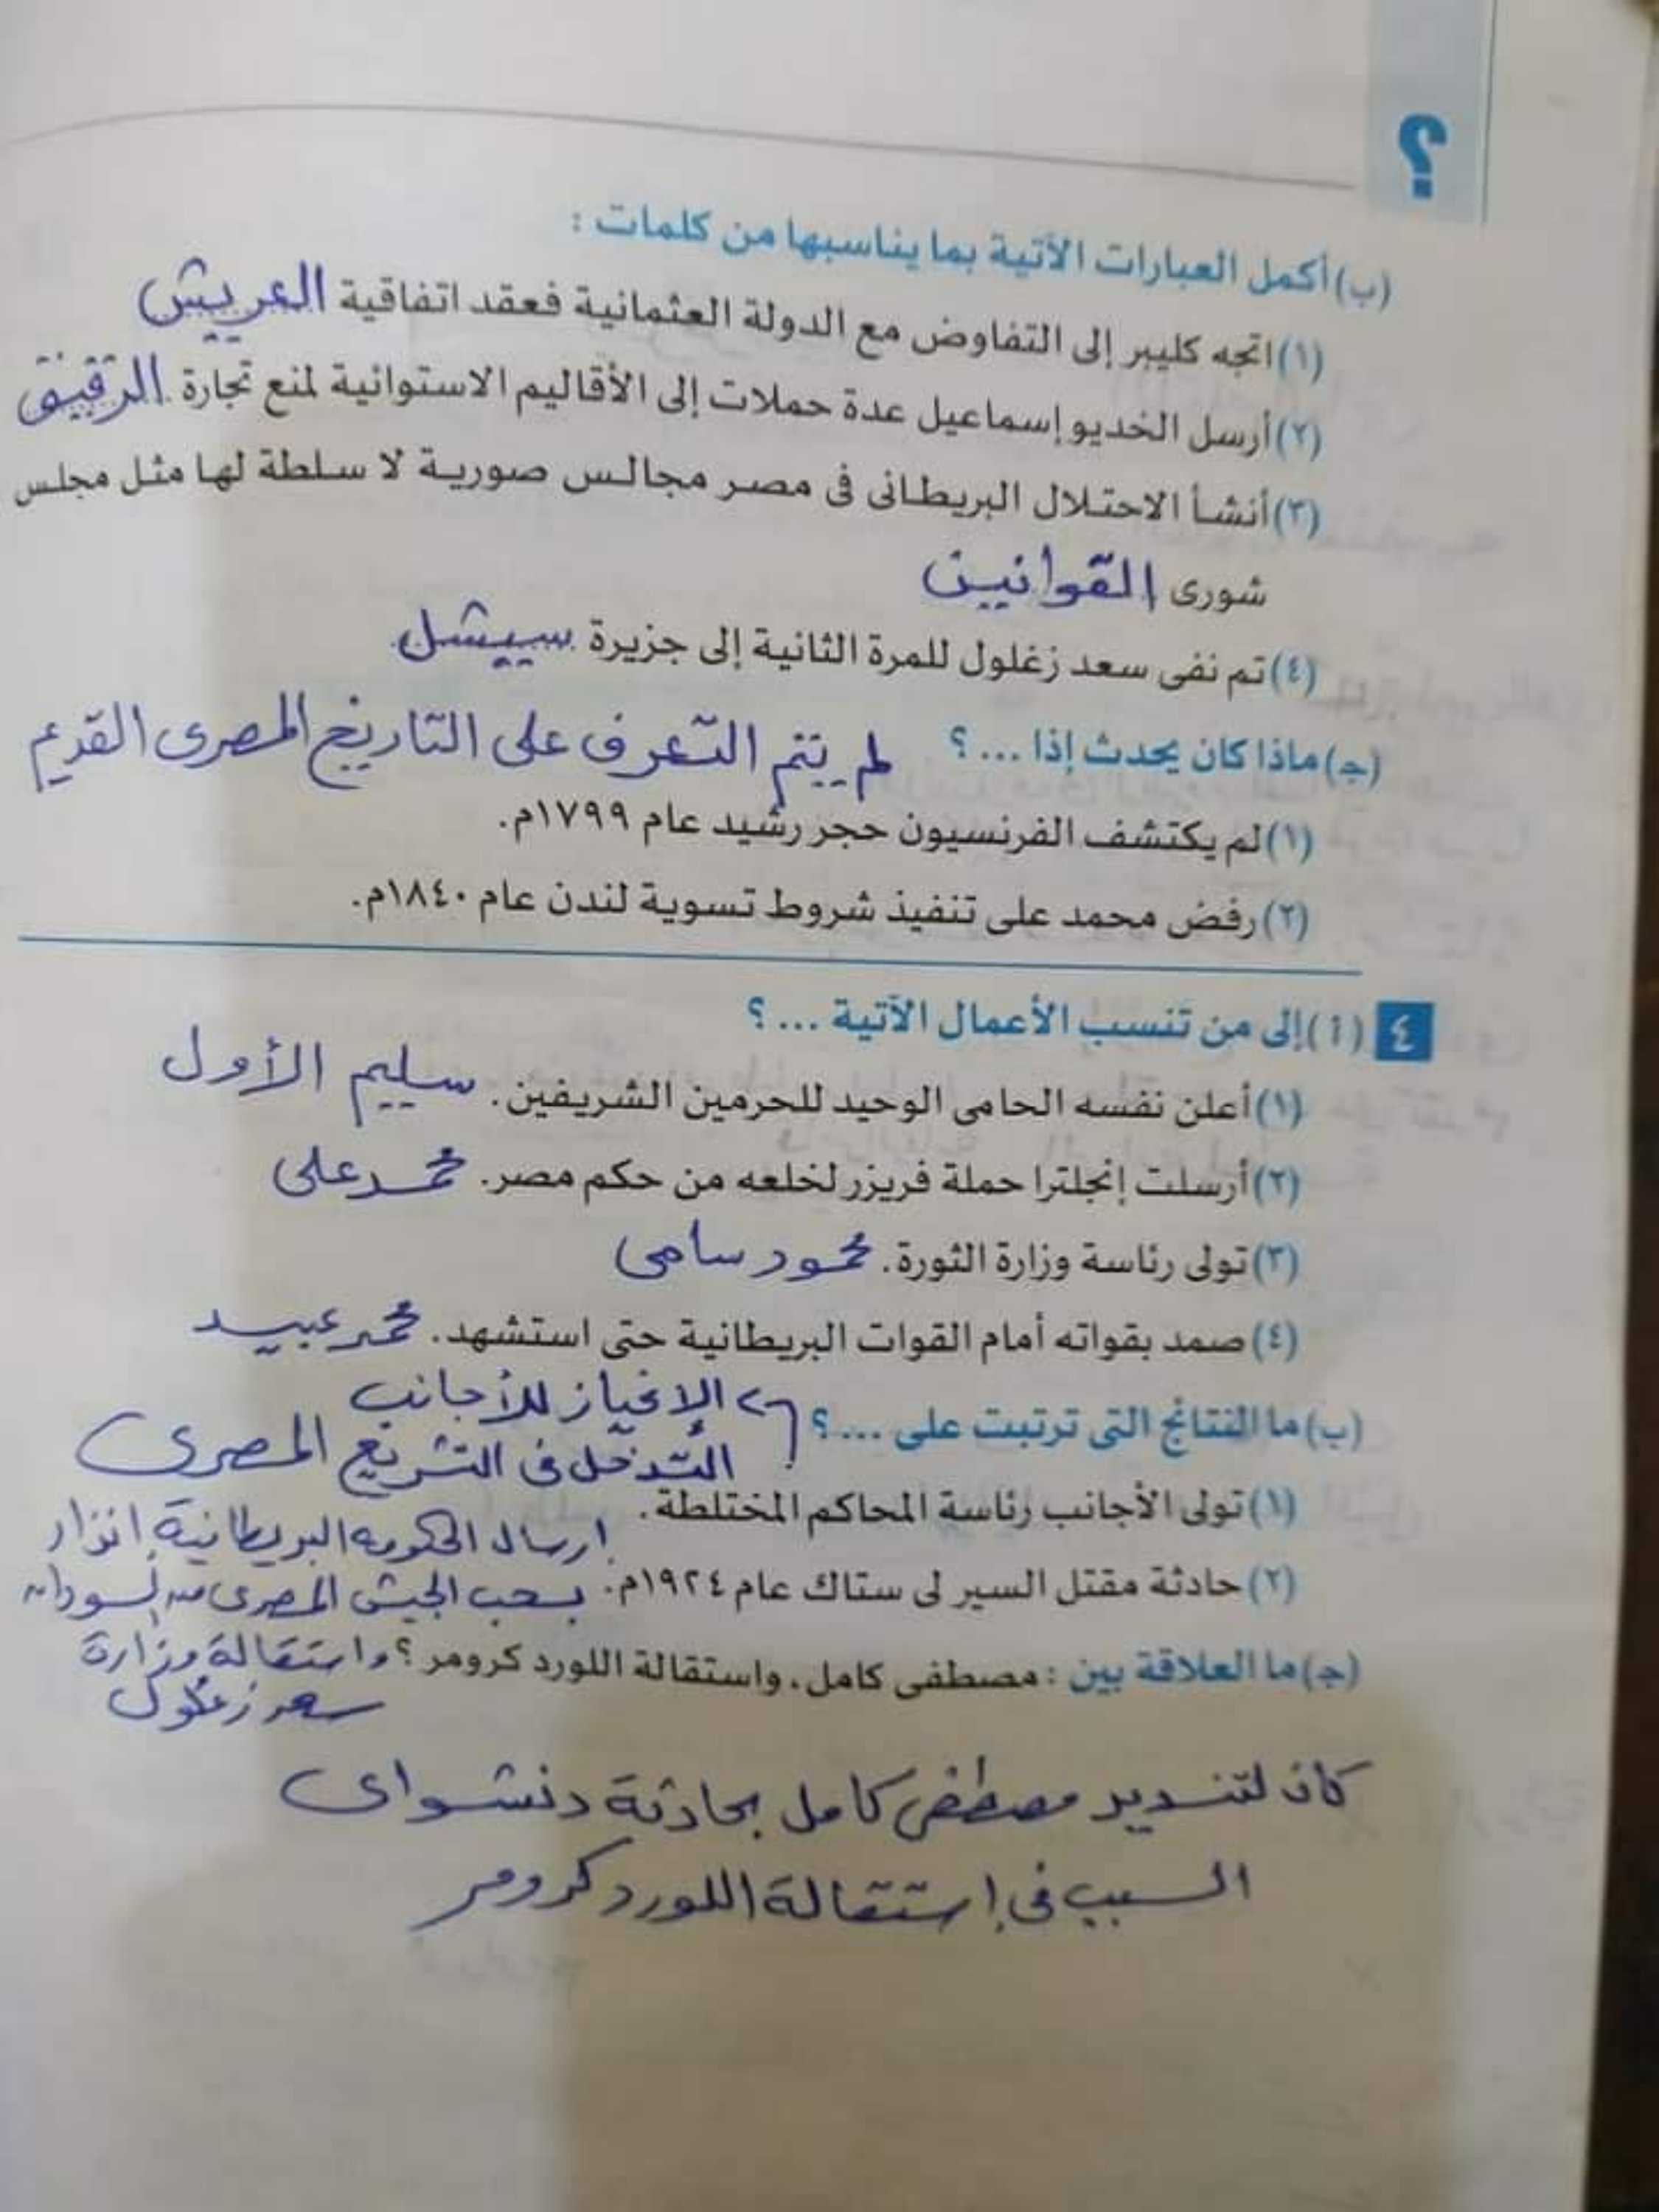 ؟
(ب) أكمل العبارات الآتية بما يناسبها من كلمات :
(١) اتجه كليبر إلى التفاوض مع الدولة العثمانية فعقد اتفاقية العريش
(٢) أرسل الخديو إسماعيل عدة حملات إلى الأقاليم الاستوائية لمنع تجارة الرقيق
(٣) أنشأ الاحتلال البريطانى فى مصر مجالس صورية لا سلطة لها مثل مجلس
شورى القوانين
(٤) تم نفى سعد زغلول للمرة الثانية إلى جزيرة سيشل
(جـ) ماذا كان يحدث إذا ... ؟ لم يتم التعرف على التاريخ المصرى القديم
(١) لم يكتشف الفرنسيون حجر رشيد عام ١٧٩٩م.
(٢) رفض محمد على تنفيذ شروط تسوية لندن عام ١٨٤٠م.
٤ (أ) إلى من تنسب الأعمال الآتية ... ؟
(١) أعلن نفسه الحامى الوحيد للحرمين الشريفين. سليم الأول
(٢) أرسلت إنجلترا حملة فريزر لخلعه من حكم مصر. محمد على
(٣) تولى رئاسة وزارة الثورة. محمود سامى
(٤) صمد بقواته أمام القوات البريطانية حتى استشهد. محمد عبيد
(ب) ما النتائج التى ترتبت على ... ؟ الإنحياز للأجانب
التدخل فى التشريع المصرى
(١) تولى الأجانب رئاسة المحاكم المختلطة.
ارسال الحكومة البريطانية انذار
(٢) حادثة مقتل السير لى ستاك عام ١٩٢٤م. بسحب الجيش المصرى من السودان
(جـ) ما العلاقة بين : مصطفى كامل، واستقالة اللورد كرومر ؟ واستقالة وزارة
سعد زغلول
كان لتنديد مصطفى كامل بحادثة دنشواى
السبب فى إستقالة اللورد كرومر